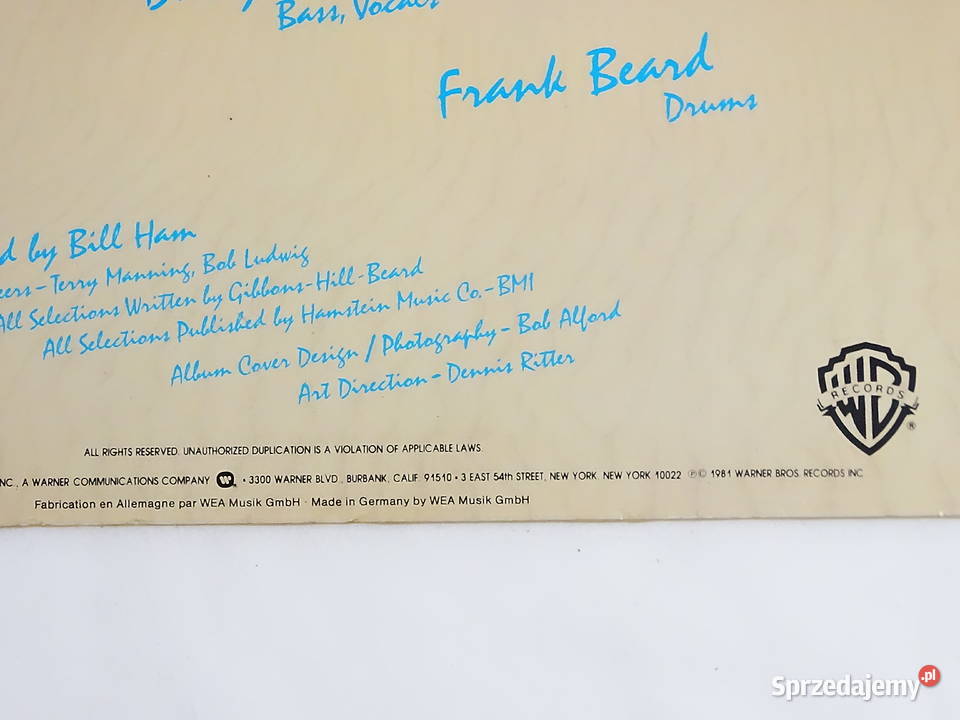 Bass, Vocals
Frank Beard
Drums
by Bill Ham
Terry Manning, Bob Ludwig
All Selections Written by Gibbons-Hill-Beard
All Selections Published by Hamstein Music Co.-BMI
Album Cover Design / Photography - Bob Alford
Art Direction - Dennis Ritter
WB
RECORDS
®
ALL RIGHTS RESERVED. UNAUTHORIZED DUPLICATION IS A VIOLATION OF APPLICABLE LAWS.
INC., A WARNER COMMUNICATIONS COMPANY • 3300 WARNER BLVD., BURBANK, CALIF. 91510 • 3 EAST 54th STREET, NEW YORK, NEW YORK 10022 ℗© 1981 WARNER BROS. RECORDS INC.
Fabrication en Allemagne par WEA Musik GmbH · Made in Germany by WEA Musik GmbH
Sprzedajemy.pl